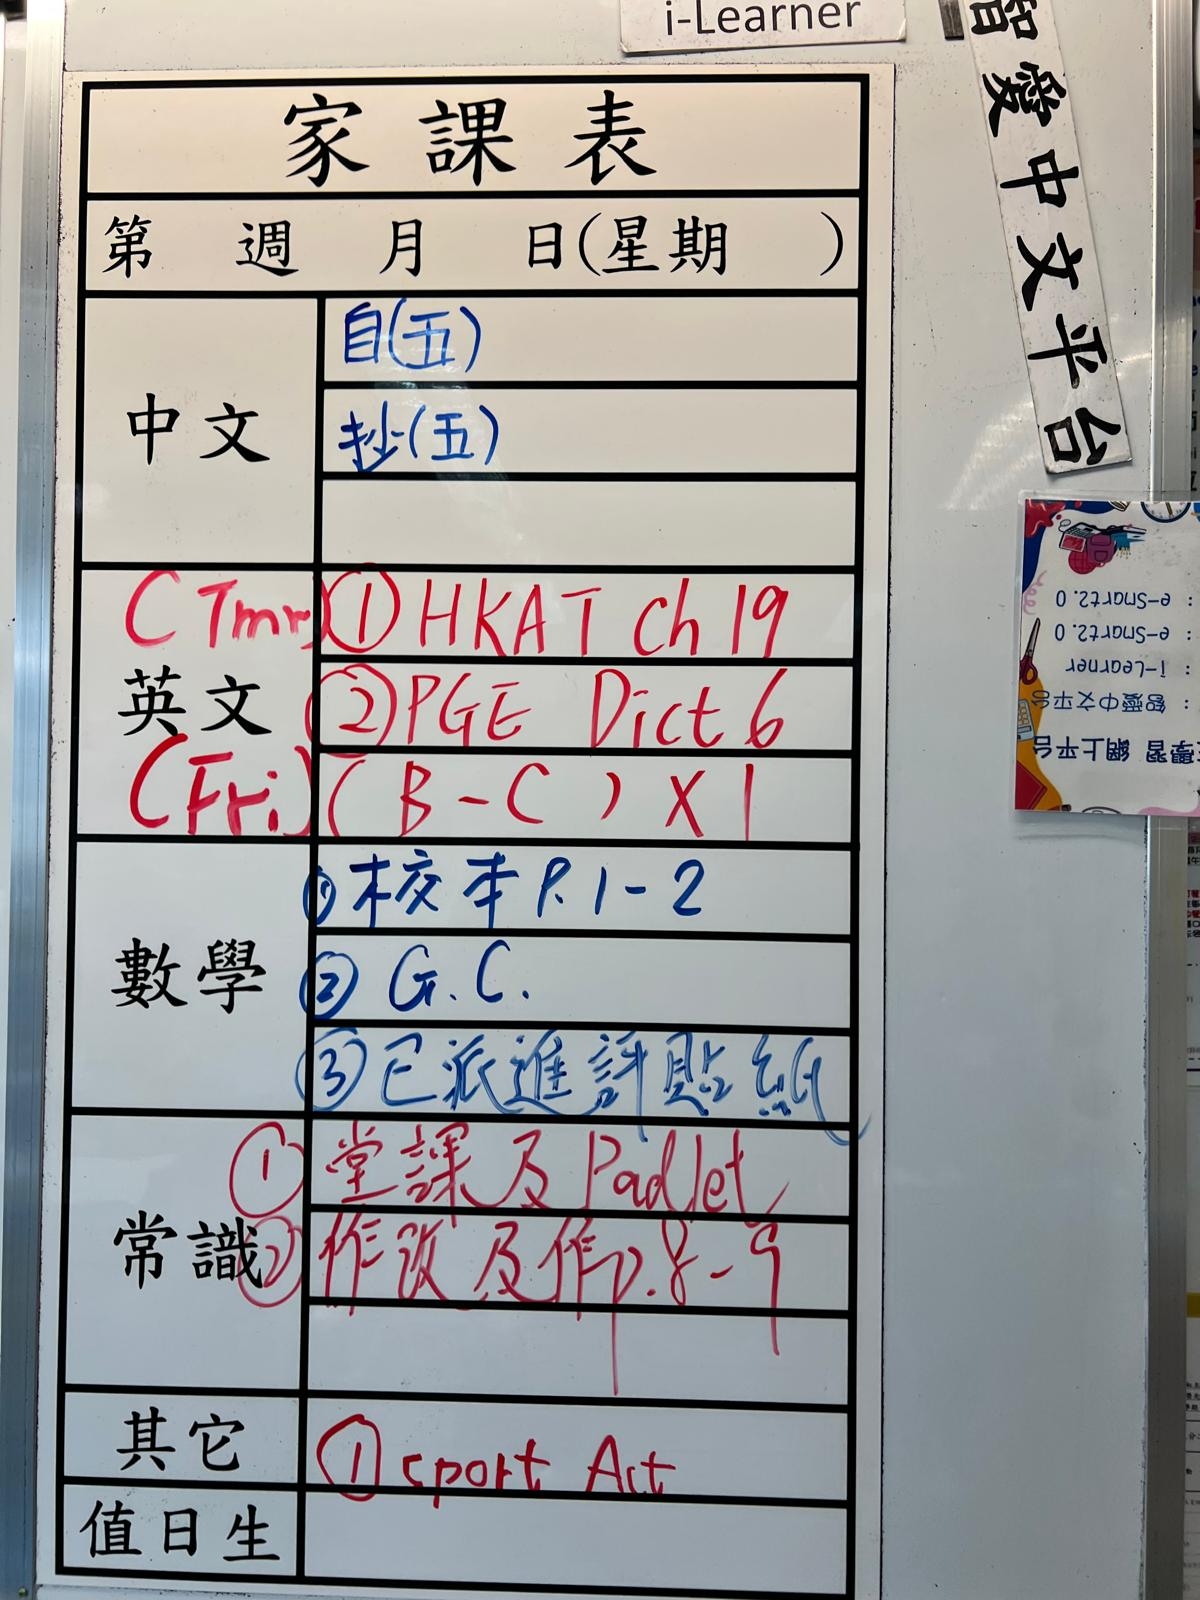 i-Learner
智愛中文平台
家課表
第 週 月 日(星期 )
中文
自(五)
抄(五)
英文
(Tmr) ① HKAT Ch 19
② PGE Dict 6
(Fri) (B-C) X 1
數學
① 校本 P.1-2
② G.C.
③ 已派進評貼紙
常識
① 堂課及Padlet
② 作改及作p.8-9
其它
① sport Act
值日生
學習 網上平台
: 智愛中文平台
: i-Learner
: e-Smart2.0
: e-Smart2.0